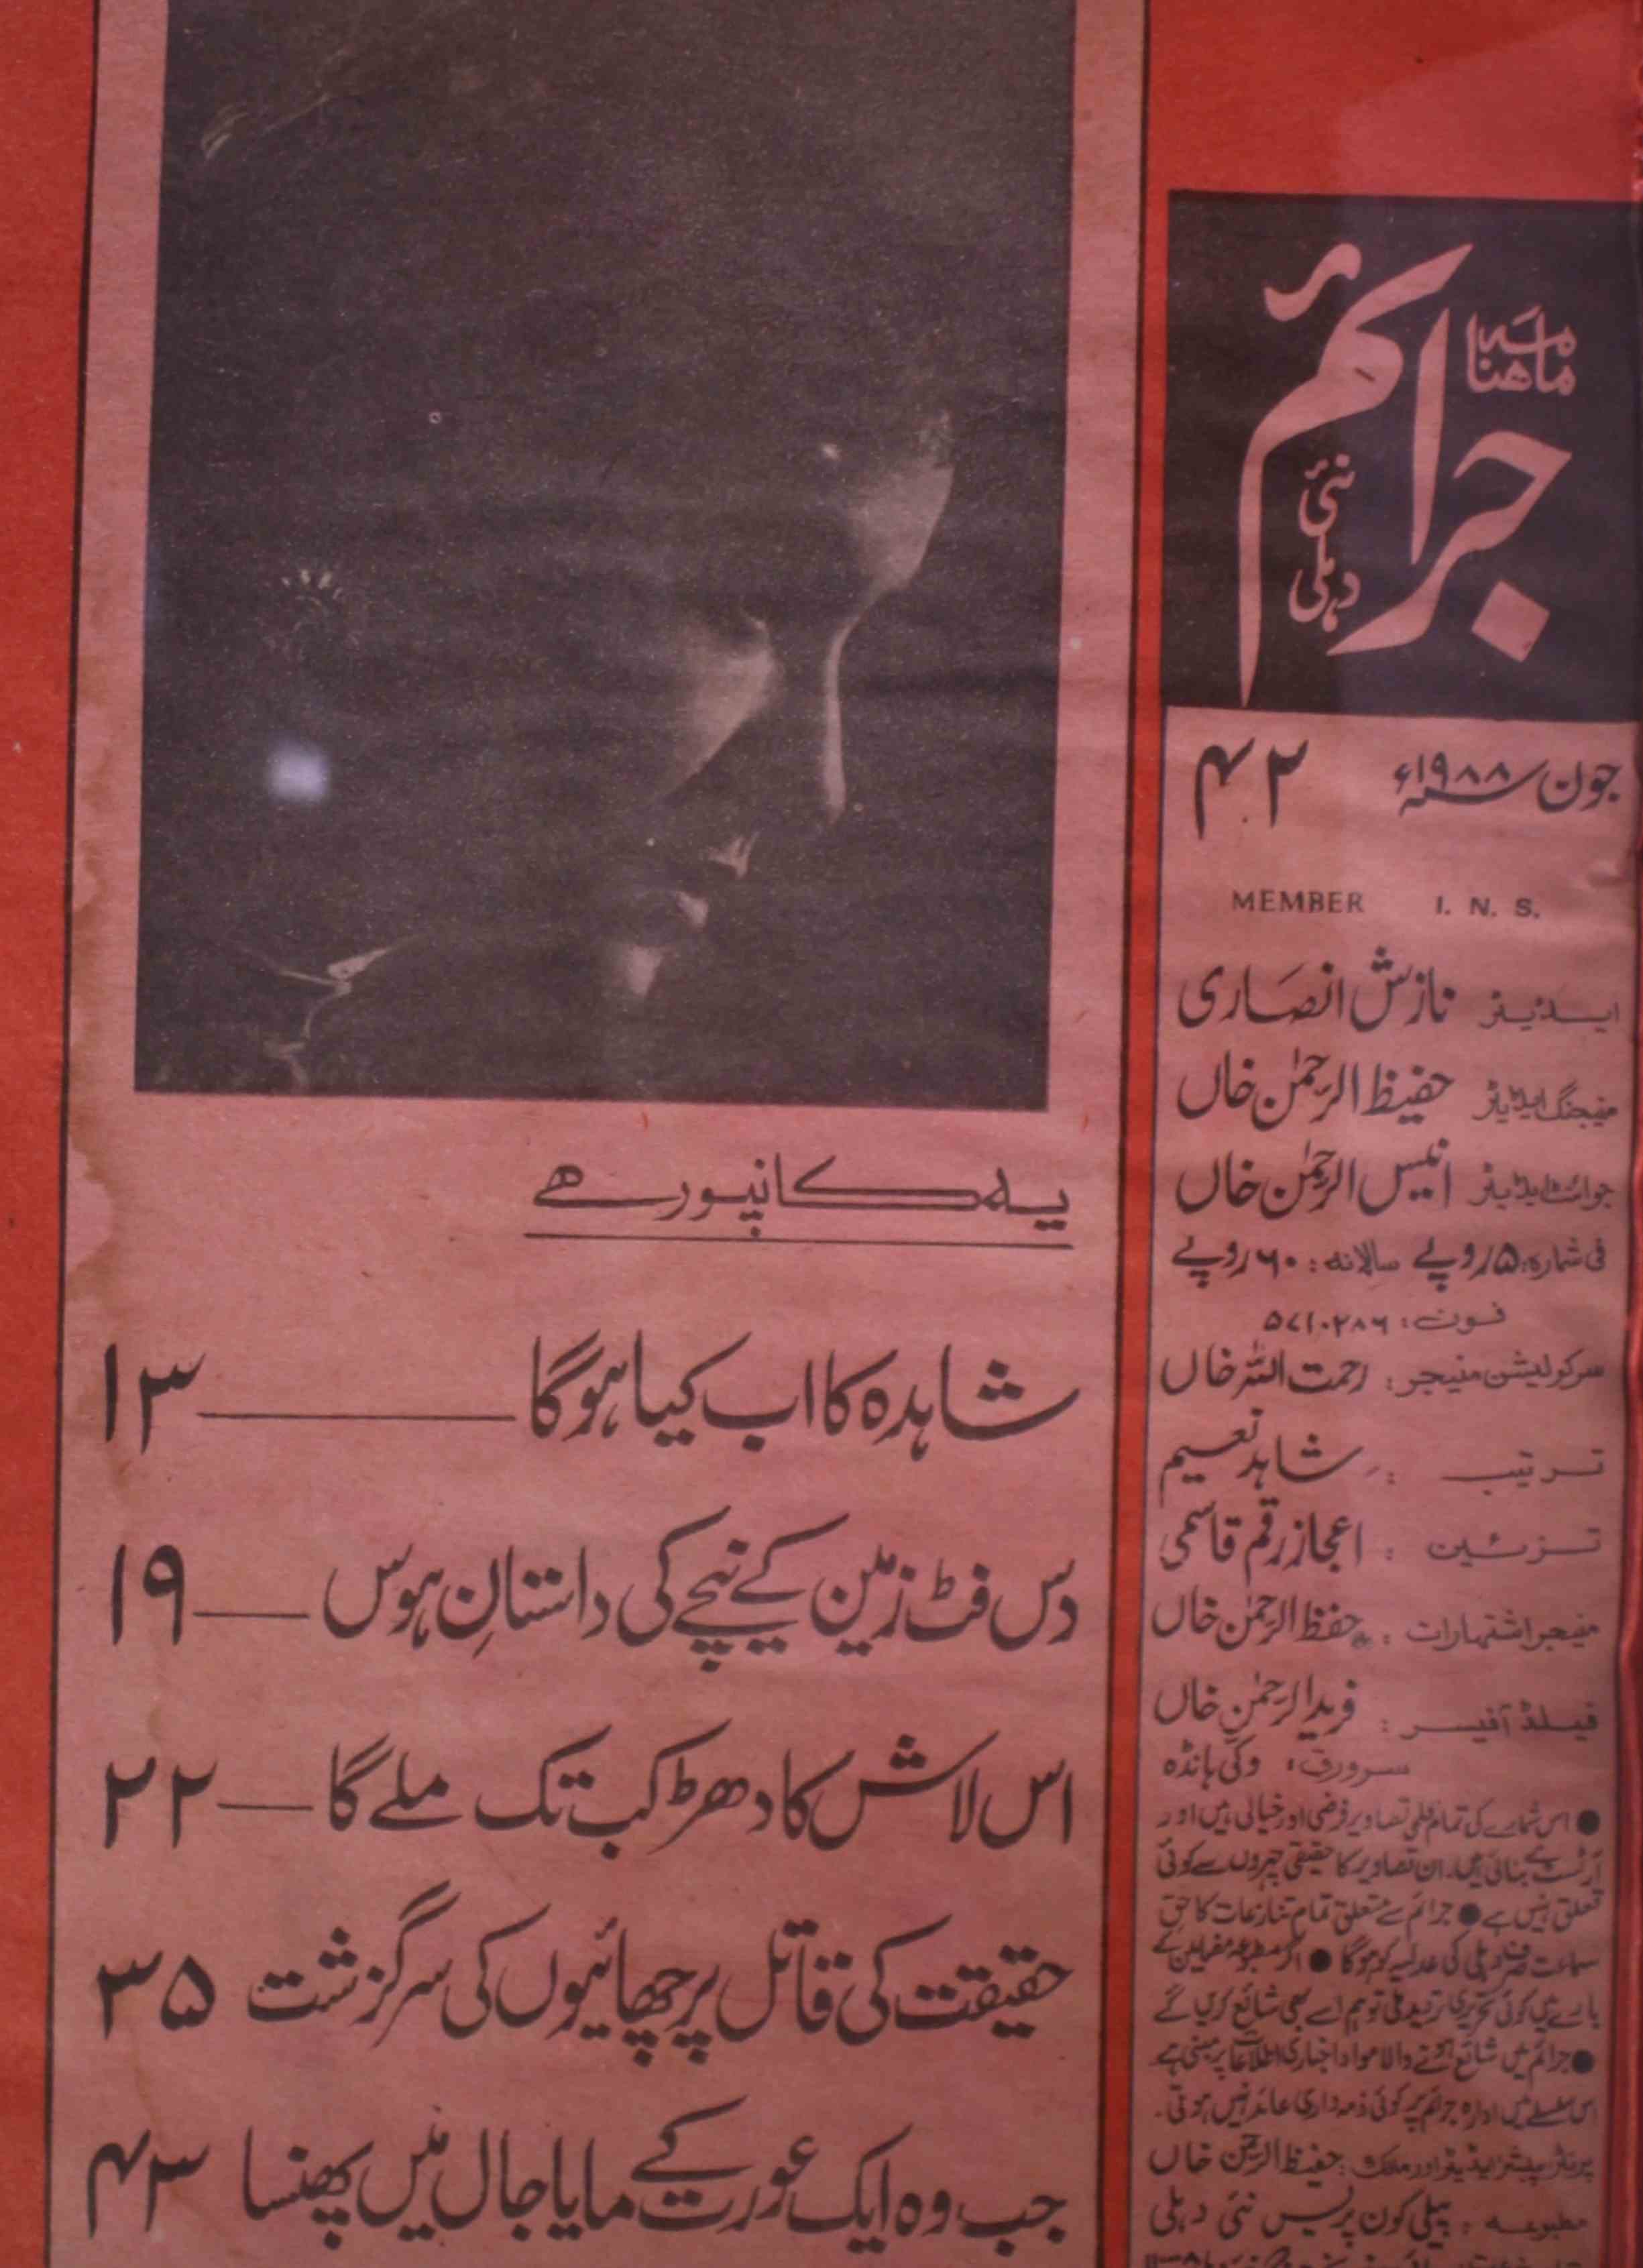 ماهنامہ
جرائم
نئی
دہلی
جون سنہ ۱۹۸۸ء ۴۲
MEMBER I. N. S.
ایڈیٹر نازش انصاری
منیجنگ ایڈیٹر حفیظ الرحمٰن خاں
جوائنٹ ایڈیٹر انیس الرحمٰن خاں
فی شمارہ: ۵/روپے سالانہ: ۶۰/روپے
فون: ۵۷۱۰۲۸۶
سرکولیشن منیجر: رحمت اللہ خاں
ترتیب : شاہد نعیم
تزئین : اعجاز رقم قاسمی
منیجر اشتہارات : حفظ الرحمٰن خاں
فیلڈ آفیسر : فرید الرحمٰن خاں
سرورق: وکی ہانڈہ
● اس شمارے کی تمام قلمی تصاویر فرضی اور خیالی ہیں اور
آرٹسٹ نے بنائی ہیں۔ ان تصاویر کا حقیقی چہروں سے کوئی
تعلق نہیں ہے ● جرائم سے متعلق تمام تنازعات کا حق
سماعت صرف دہلی کی عدلیہ کو ہوگا ● اگر مطبوعہ مضامین کے
بارے میں کوئی تحریری تردید ملی تو ہم اسے بھی شائع کریں گے
● جرائم میں شائع ہونے والا مواد اخباری اطلاعات پر مبنی ہے
اس سلسلے میں ادارہ جرائم پر کوئی ذمہ داری عائد نہیں ہوتی۔
پرنٹر پبلشر ایڈیٹر اور مالک : حفیظ الرحمٰن خاں
مطبوعہ : پیلی کون پریس نئی دہلی
یہ کانپور ہے
شاہدہ کا اب کیا ہوگا ــــــ ۱۳
دس فٹ زمین کے نیچے کی داستانِ ہوس ــــ ۱۹
اس لاش کا دھڑ کب تک ملے گا ــــ ۲۲
حقیقت کی قاتل پرچھائیوں کی سرگزشت ۳۵
جب وہ ایک عورت کے مایا جال میں پھنسا ۴۳